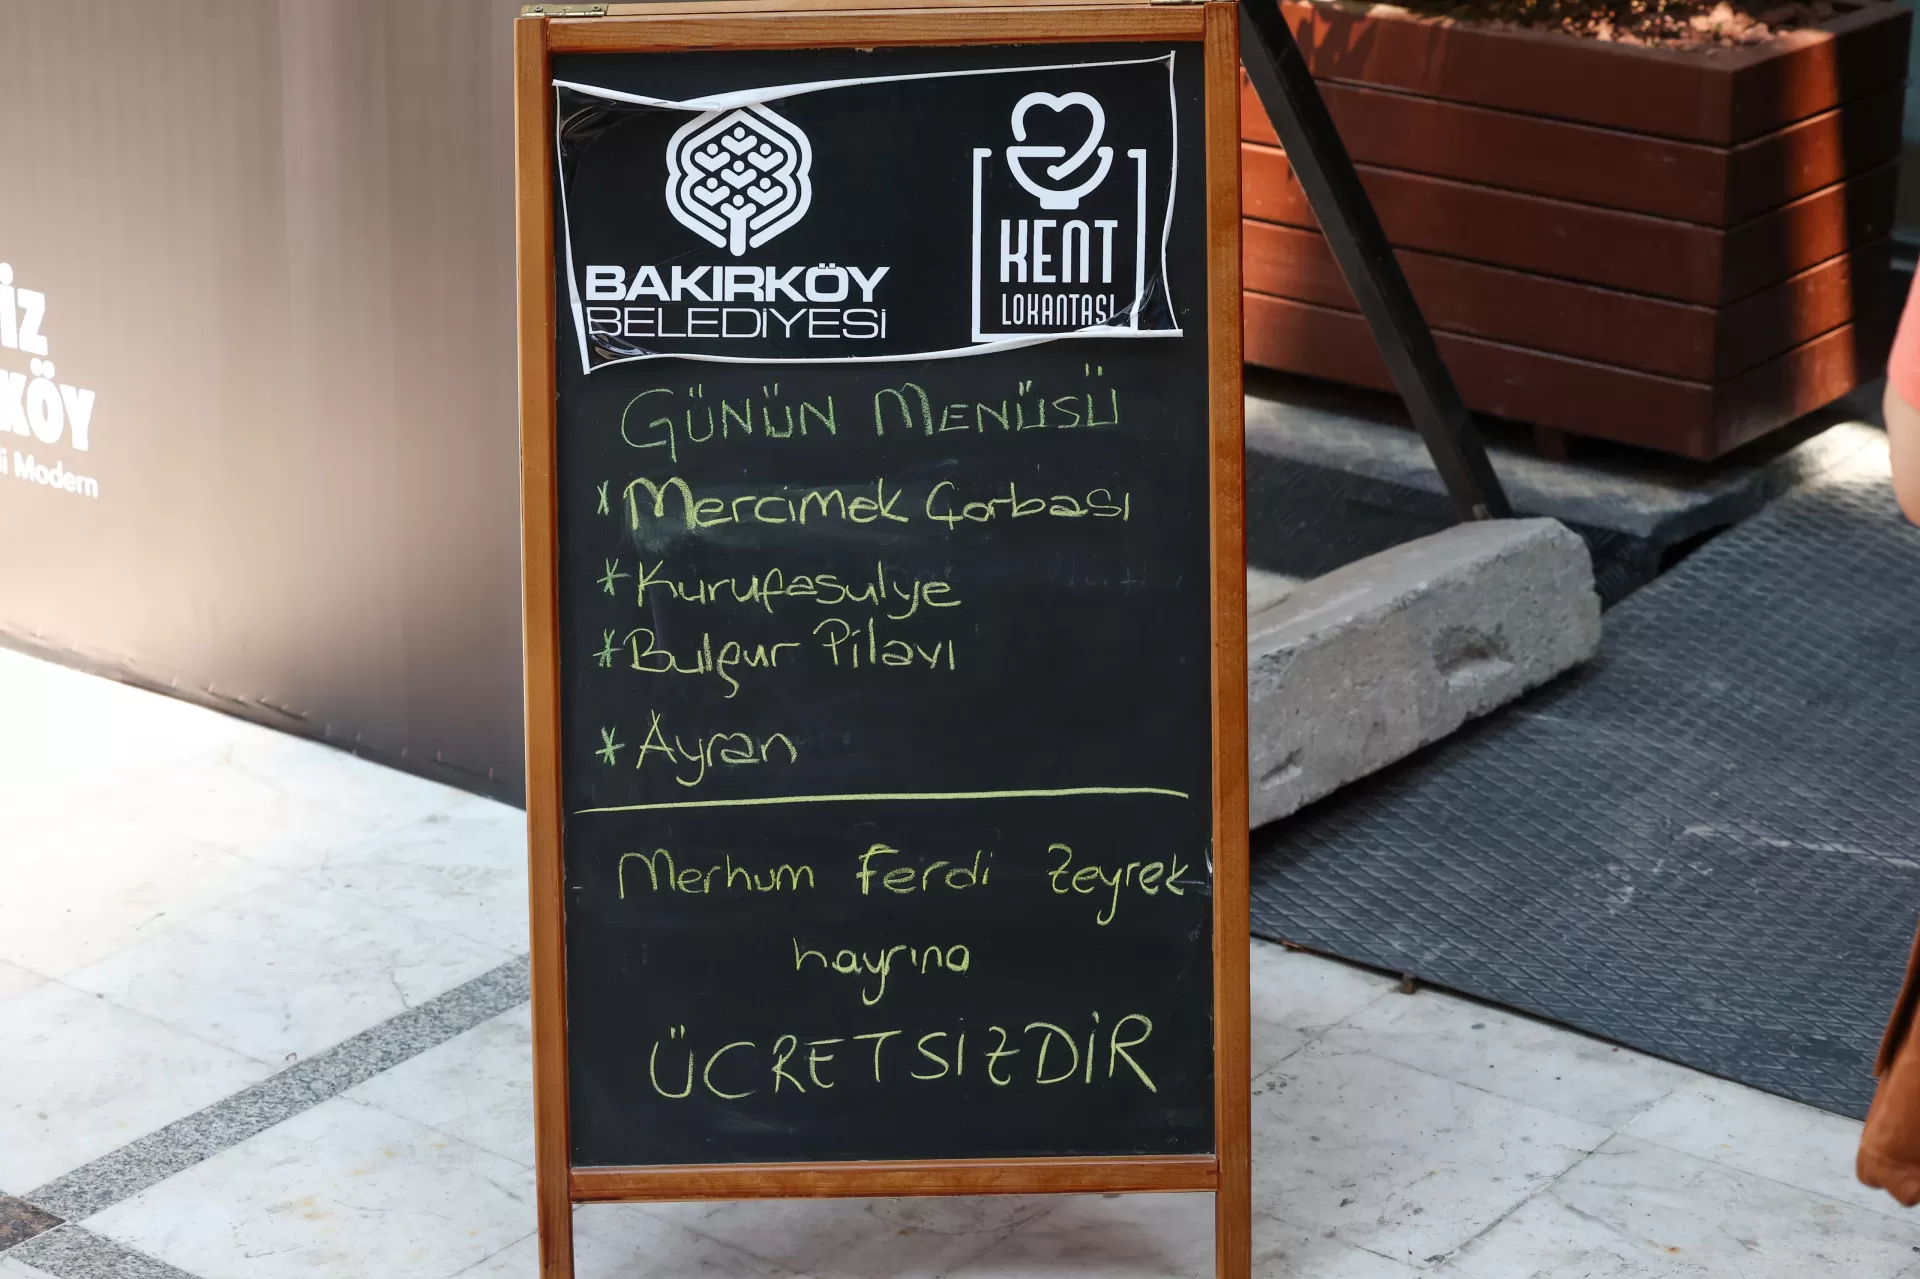 BAKIRKÖY
BELEDİYESİ
KENT
LOKANTASI
GÜNÜN MENÜSÜ
* Mercimek Çorbası
* Kurufasulye
* Bulgur Pilavı
* Ayran
Merhum Ferdi Zeyrek
hayrına
ÜCRETSİZDİR
İZ
KÖY
i Modern